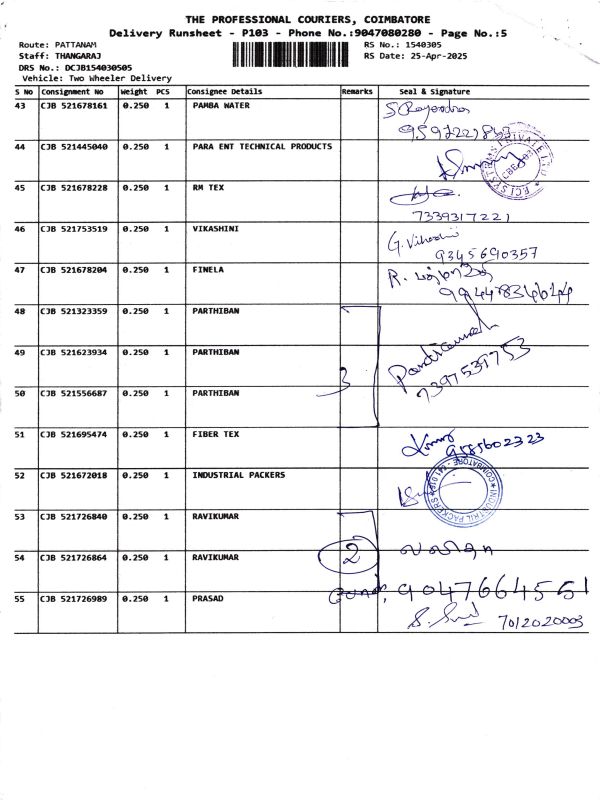 THE PROFESSIONAL COURIERS, COIMBATORE
Delivery Runsheet - P103 - Phone No.:9047080280 - Page No.:5
Route: PATTANAM
RS No.: 1540305
Staff: THANGARAJ
RS Date: 25-Apr-2025
DRS No.: DCJB154030505
Vehicle: Two Wheeler Delivery
S No Consignment No Weight PCS Consignee Details Remarks Seal & Signature
43 CJB 521678161 0.250 1 PAMBA WATER
44 CJB 521445040 0.250 1 PARA ENT TECHNICAL PRODUCTS
45 CJB 521678228 0.250 1 RM TEX
7339317221
46 CJB 521753519 0.250 1 VIKASHINI
9345690357
47 CJB 521678204 0.250 1 FINELA
48 CJB 521323359 0.250 1 PARTHIBAN
49 CJB 521623934 0.250 1 PARTHIBAN
3
7397539753
50 CJB 521556687 0.250 1 PARTHIBAN
51 CJB 521695474 0.250 1 FIBER TEX
9585602323
52 CJB 521672018 0.250 1 INDUSTRIAL PACKERS
53 CJB 521726840 0.250 1 RAVIKUMAR
54 CJB 521726864 0.250 1 RAVIKUMAR
2
55 CJB 521726989 0.250 1 PRASAD
9047664551
7012020003